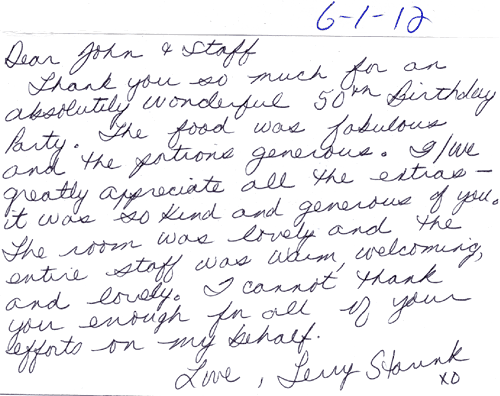 6-1-12
Dear John & Staff
Thank you so much for an
absolutely wonderful 50th Birthday
Party. The food was fabulous
and the portions generous. I/we
greatly appreciate all the extras –
it was so kind and generous of you.
The room was lovely and the
entire staff was warm, welcoming,
and lovely. I cannot thank
you enough for all of your
efforts on my behalf.
Love, Terry
XO